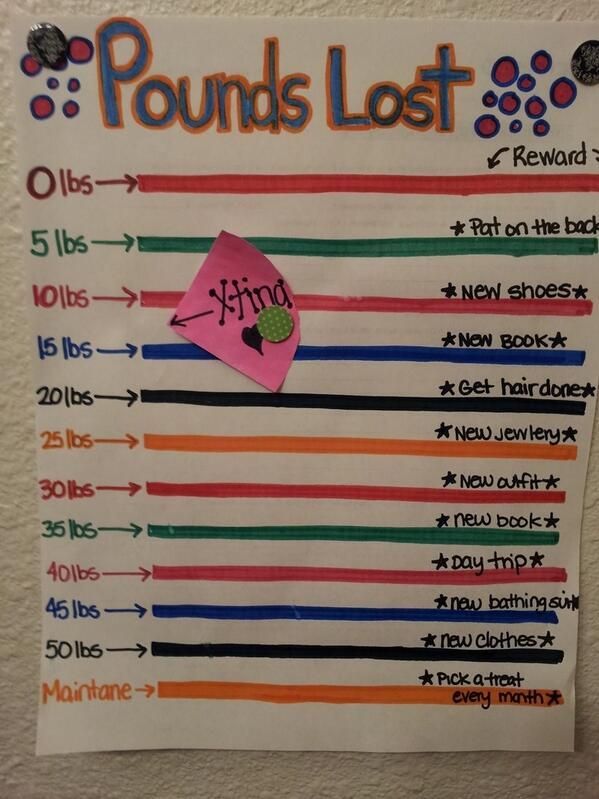 Pounds Lost
Reward
0 lbs
5 lbs *Pat on the back
10 lbs *New shoes*
Xtina
15 lbs *New Book*
20 lbs *Get hair done*
25 lbs *New Jewlery*
30 lbs *New outfit*
35 lbs *new book*
40 lbs *Day trip*
45 lbs *new bathing suit*
50 lbs *new clothes*
Maintane *Pick a treat
every month*